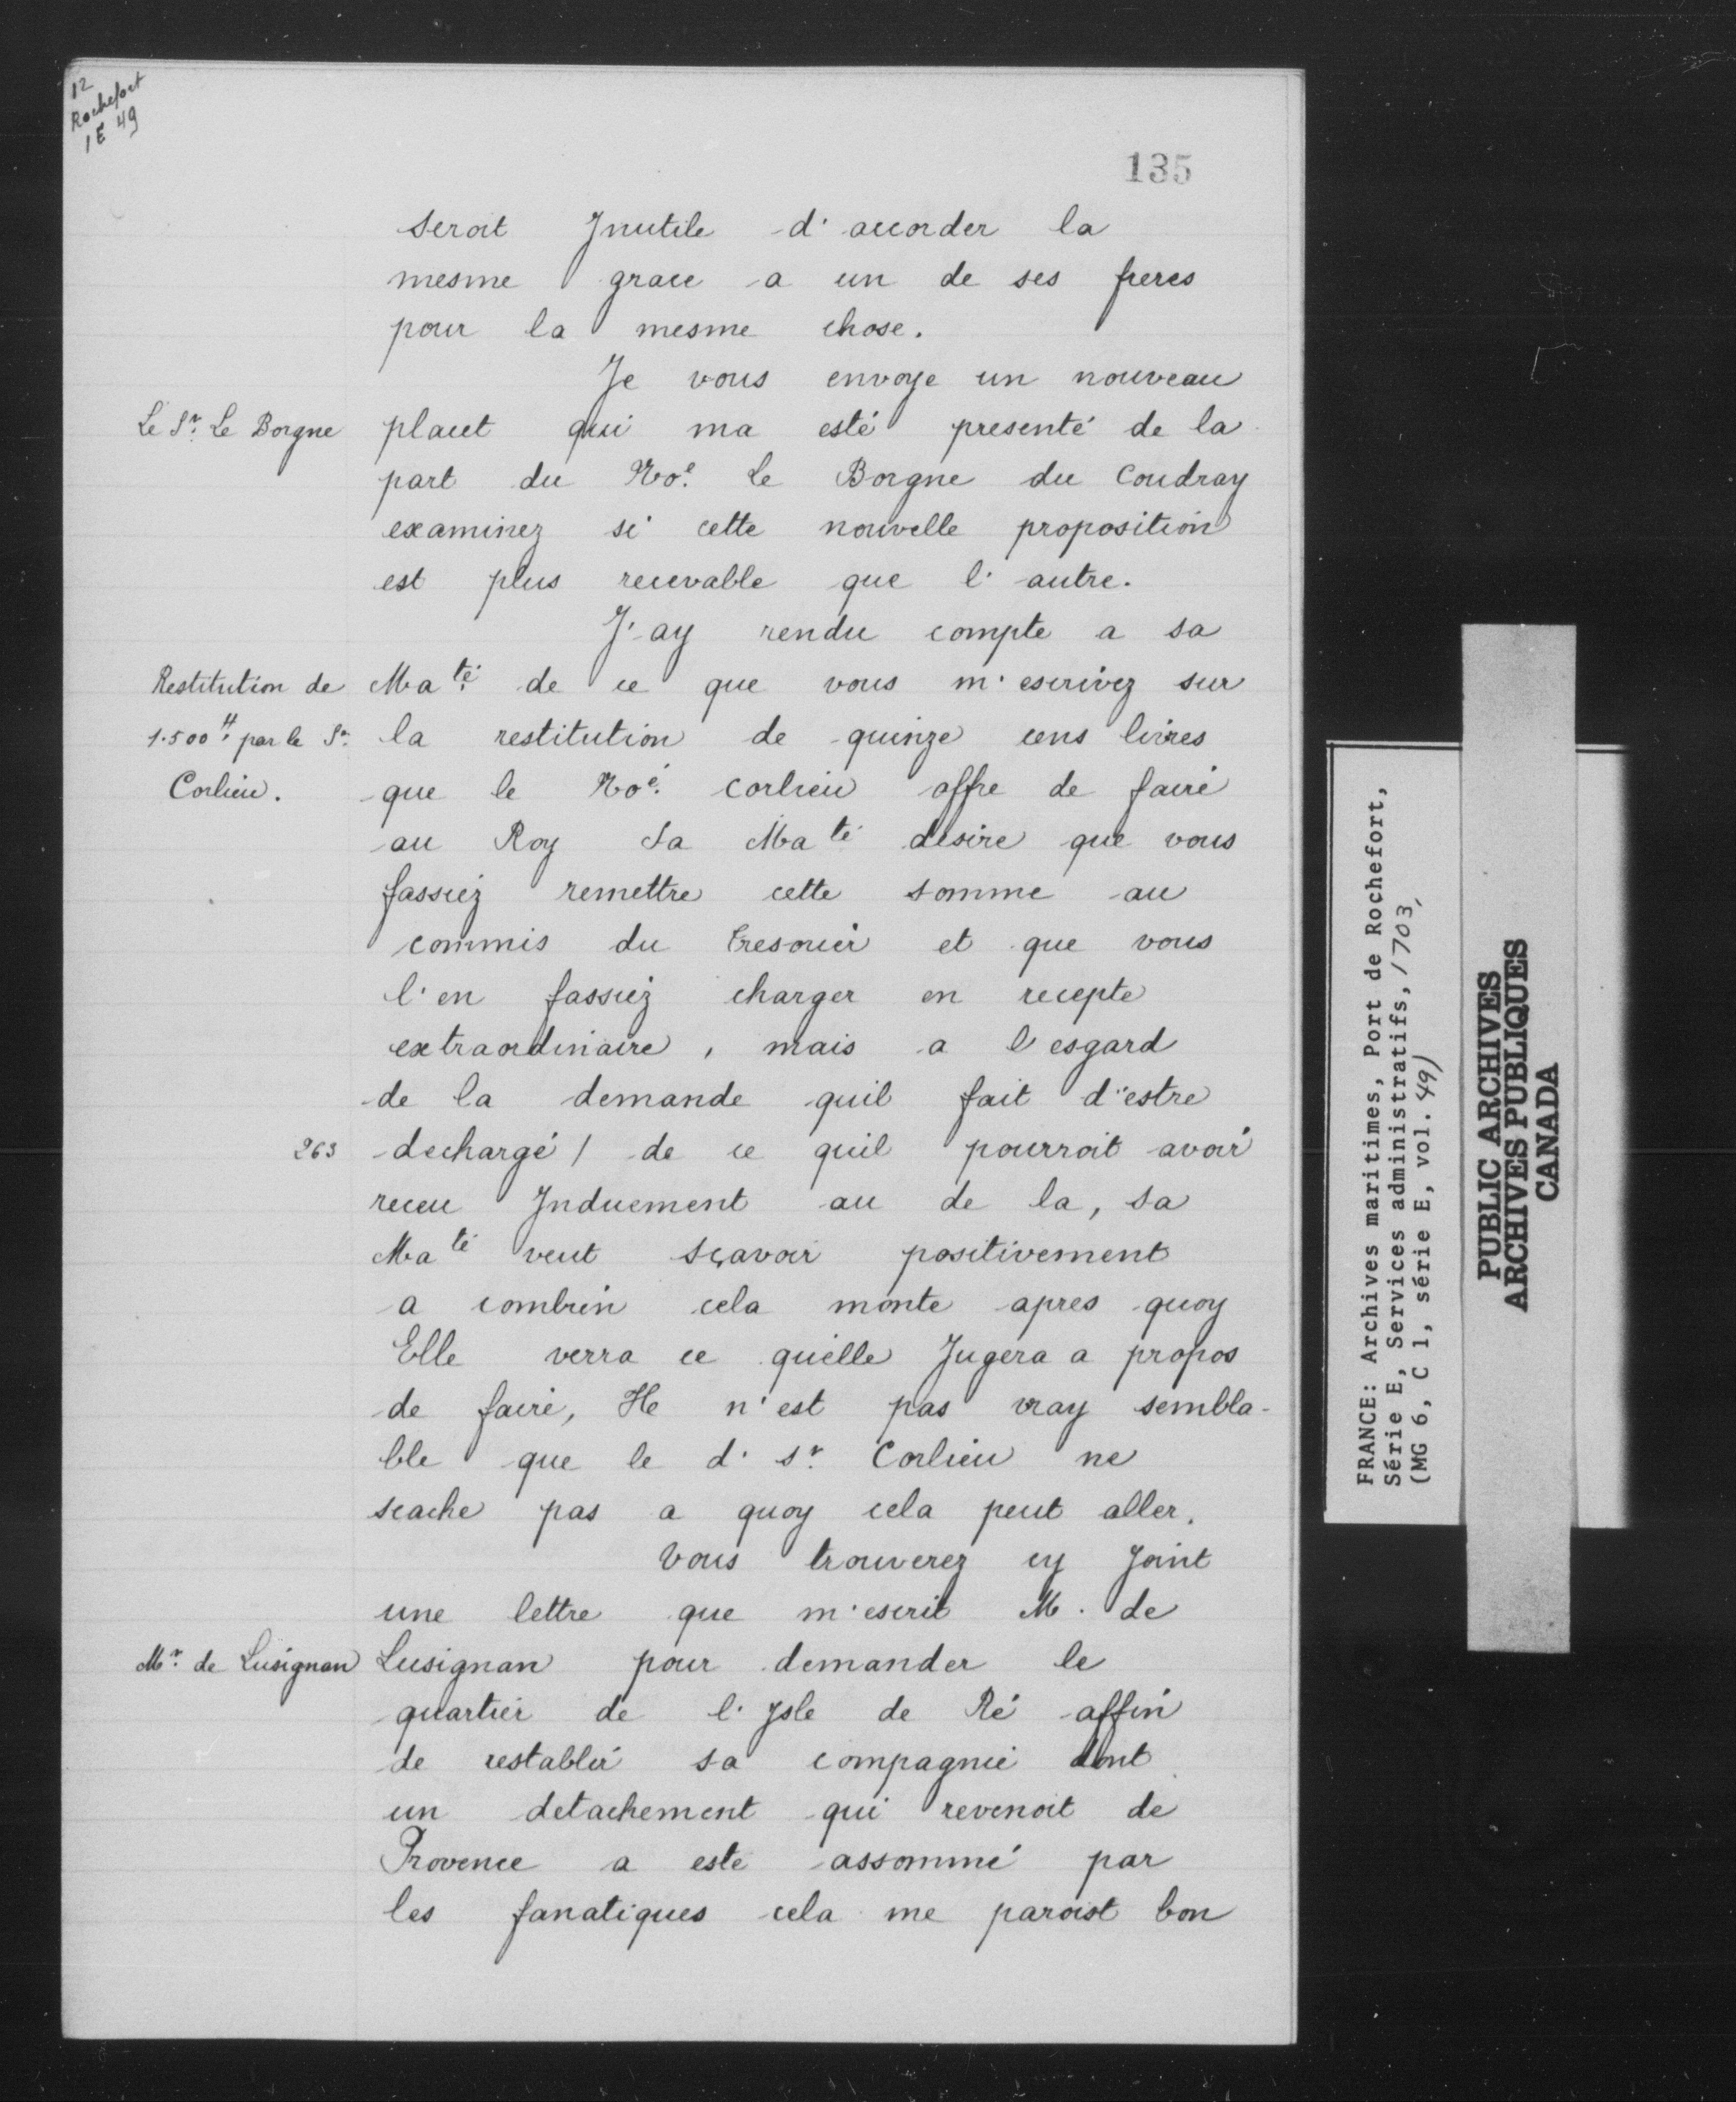 12
Rochefort
1E 49
135
seroit Jnutile d'accorder la
mesme grace a un de ses freres
pour la mesme chose.
Je vous envoye un nouveau
Le Sr. Le Borgne placet qui ma esté presenté de la
part du No.e Le Borgne du Coudray
examinez si cette nouvelle proposition
est plus recevable que l'autre.
J'ay rendu compte a sa
Restitution de Ma.té de ce que vous m'escrivez sur
1.500₶ par le Sr. la restitution de quinze cens livres
Corlieu. que le No.é corlieu offre de faire
au Roy Sa Ma.té desire que vous
fassiez remettre cette somme au
commis du tresorier et que vous
l'en fassiez charger en recepte
extraordinaire, mais a l'esgard
de la demande quil fait d'estre
263 dechargé / de ce quil pourroit avoir
receu Jnduement au de la, sa
Ma té veut sçavoir positivement
a combien cela monte apres quoy
Elle verra ce quelle Jugera a propos
de faire, He n'est pas vray sembla-
ble que le d. sr. Corlieu ne
scache pas a quoy cela peut aller.
Vous trouverez cy Joint
une lettre que m'escrit M. de
Mr. de Lusignan Lusignan pour demander le
quartier de l'Jsle de Ré affin
de restablir sa compagnie dont
un detachement qui revenoit de
Provence a este assommé par
les fanatiques cela me paroist bon
FRANCE: Archives maritimes, Port de Rochefort,
Série E, Services administratifs, 1703,
(MG 6, C 1, série E, vol. 49)
PUBLIC ARCHIVES
ARCHIVES PUBLIQUES
CANADA